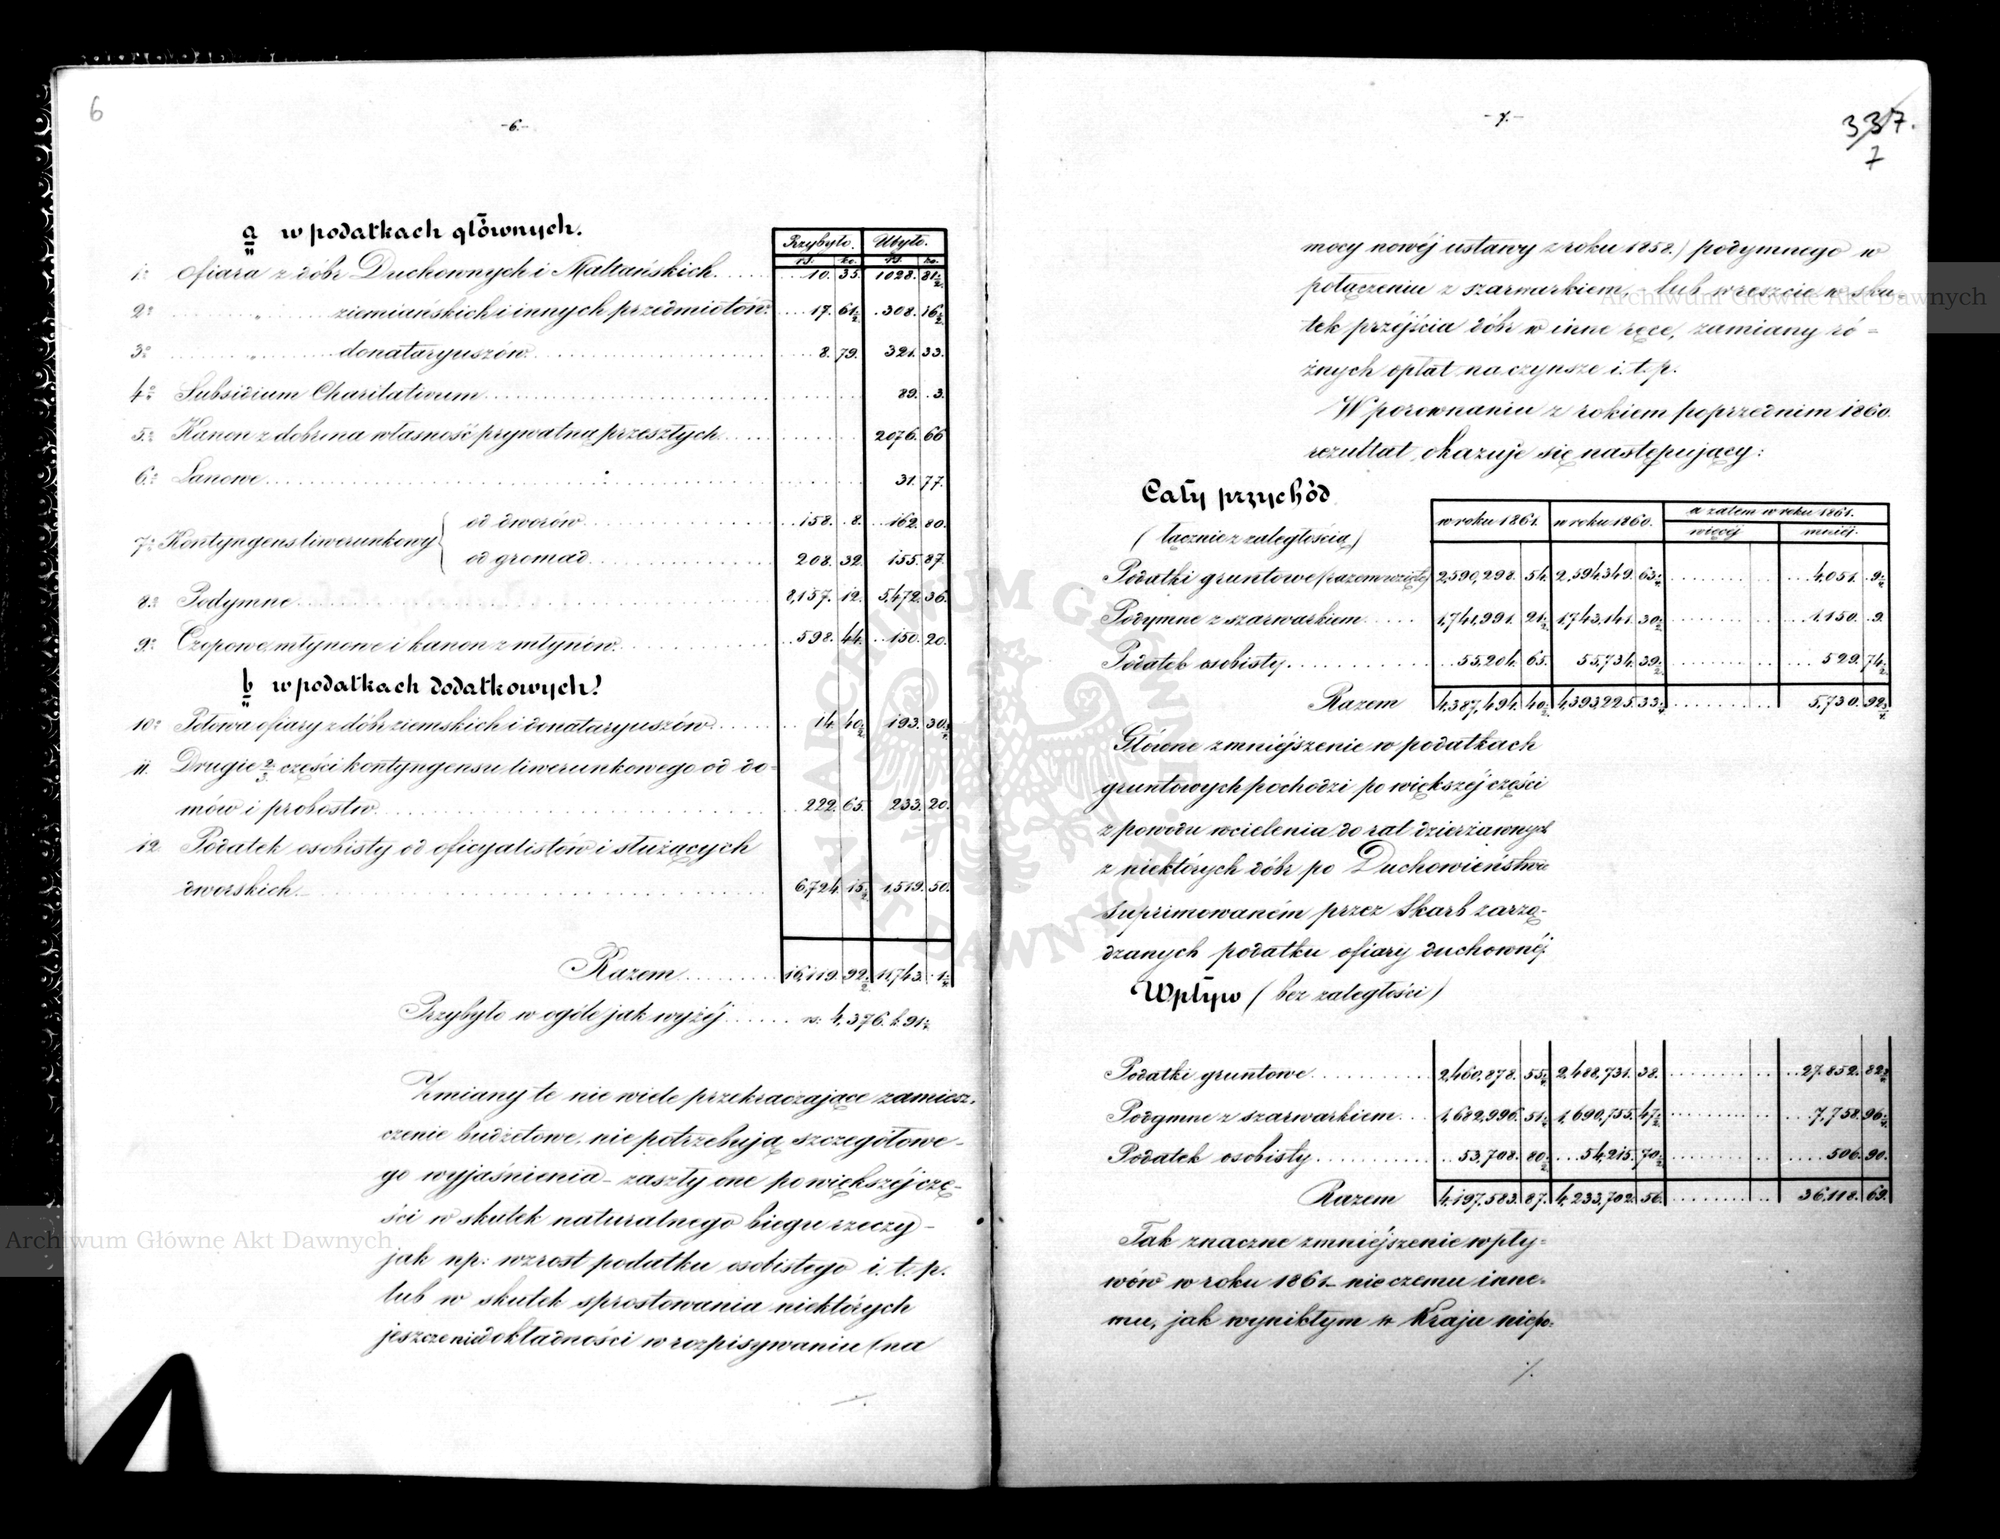 6
-6.-
a w podatkach głównych.
Przybyło. Ubyło.
rs. ko. rs. ko.
1o Ofiara z dóbr Duchownych i Maltańskich. 10. 35. 1028. 81½
2o " ziemiańskich i innych przedmiotów 17. 61½ 308. 16½
3o " donataryuszów 8. 79. 321. 33.
4o Subsidium Charitativum 89. 3.
5o Kanon z dobr na własność prywatną przeszłych 2076. 66
6o Łanowe 31. 77.
7o Kontyngens liwerunkowy { od dworów 158. 8. 162. 80.
od gromad 208. 32. 155. 87.
8o Podymne 8,157. 12. 5,472. 36.
9o Czopowe młynowe i kanon z młynów 598. 44. 150. 20.
b w podatkach dodatkowych!
10o Połowa ofiary z dóbr ziemskich i donataryuszów 14. 40½ 193. 30¾
11. Drugie 2/3 części kontyngensu liwerunkowego od do-
mów i probostw 222. 65. 233. 20.
12. Podatek osobisty od oficyalistów i służących
dworskich. 6,724. 15½ 1,519. 50.
Razem 16,119. 92½ 11,743. 1¼
Przybyło w ogóle jak wyżéj rs: 4,376. k. 91¼
Zmiany te nie wiele przekraczające zamiesz-
czenie budżetowe, nie potrzebują szczegółowe-
go wyjaśnienia - zaszły one po większéj czę-
ści w skutek naturalnego biegu rzeczy -
jak np: wzrost podatku osobistego i. t. p.
lub w skutek sprostowania niektórych
jeszcze niedokładności w rozpisywaniu (na
-7.-
337.
7
mocy nowéj ustawy z roku 1858.) podymnego w
połączeniu z szarwarkiem, - lub wreszcie w sku-
tek przéjścia dóbr w inne ręce, zamiany ró-
żnych opłat na czynsze i. t. p.
W porownaniu z rokiem poprzednim 1860.
rezultat okazuje się następujący:
Cały przychód
(łącznie z zaległością)
w roku 1861. w roku 1860. a zatem w roku 1861.
więcéj mniéj.
Podatki gruntowe (razem wzięte) 2,590,298. 54. 2,594,349. 63¼ 4,051. 9¼
Podymne z szarwarkiem 1,741,991. 21½ 1,743,141. 30½ 1,150. 9.
Podatek osobisty. 55,204. 65. 55,734. 39½ 529. 74½
Razem 4,387,494. 40½ 4,393,225. 33¼ 5,730. 92¾
Główne zmniéjszenie w podatkach
gruntowych pochodzi po większéj części
z powodu wcielenia do rat dzierżawnych
z niektórych dóbr po Duchowieństwie
suprimowaném przez Skarb zarzą-
dzanych podatku ofiary duchownéj.
Wpływ (bez zaległości)
Podatki gruntowe 2,460,878. 55¼ 2,488,731. 38. 27,852. 82¾
Podymne z szarwarkiem 1,682,996. 51¼ 1,690,755. 47½ 7,758. 96¼
Podatek osobisty 53,708. 80½ 54,215. 70½ 506. 90.
Razem 4,197,583. 87. 4,233,702. 56. 36,118. 69.
Tak znaczne zmniéjszenie wpły-
wów w roku 1861 - nie czemu inne-
mu, jak wynikłym w Kraju niepo-
./.
Archiwum Główne Akt Dawnych
Archiwum Główne Akt Dawnych
ARCHIWUM GŁÓWNE AKT DAWNYCH